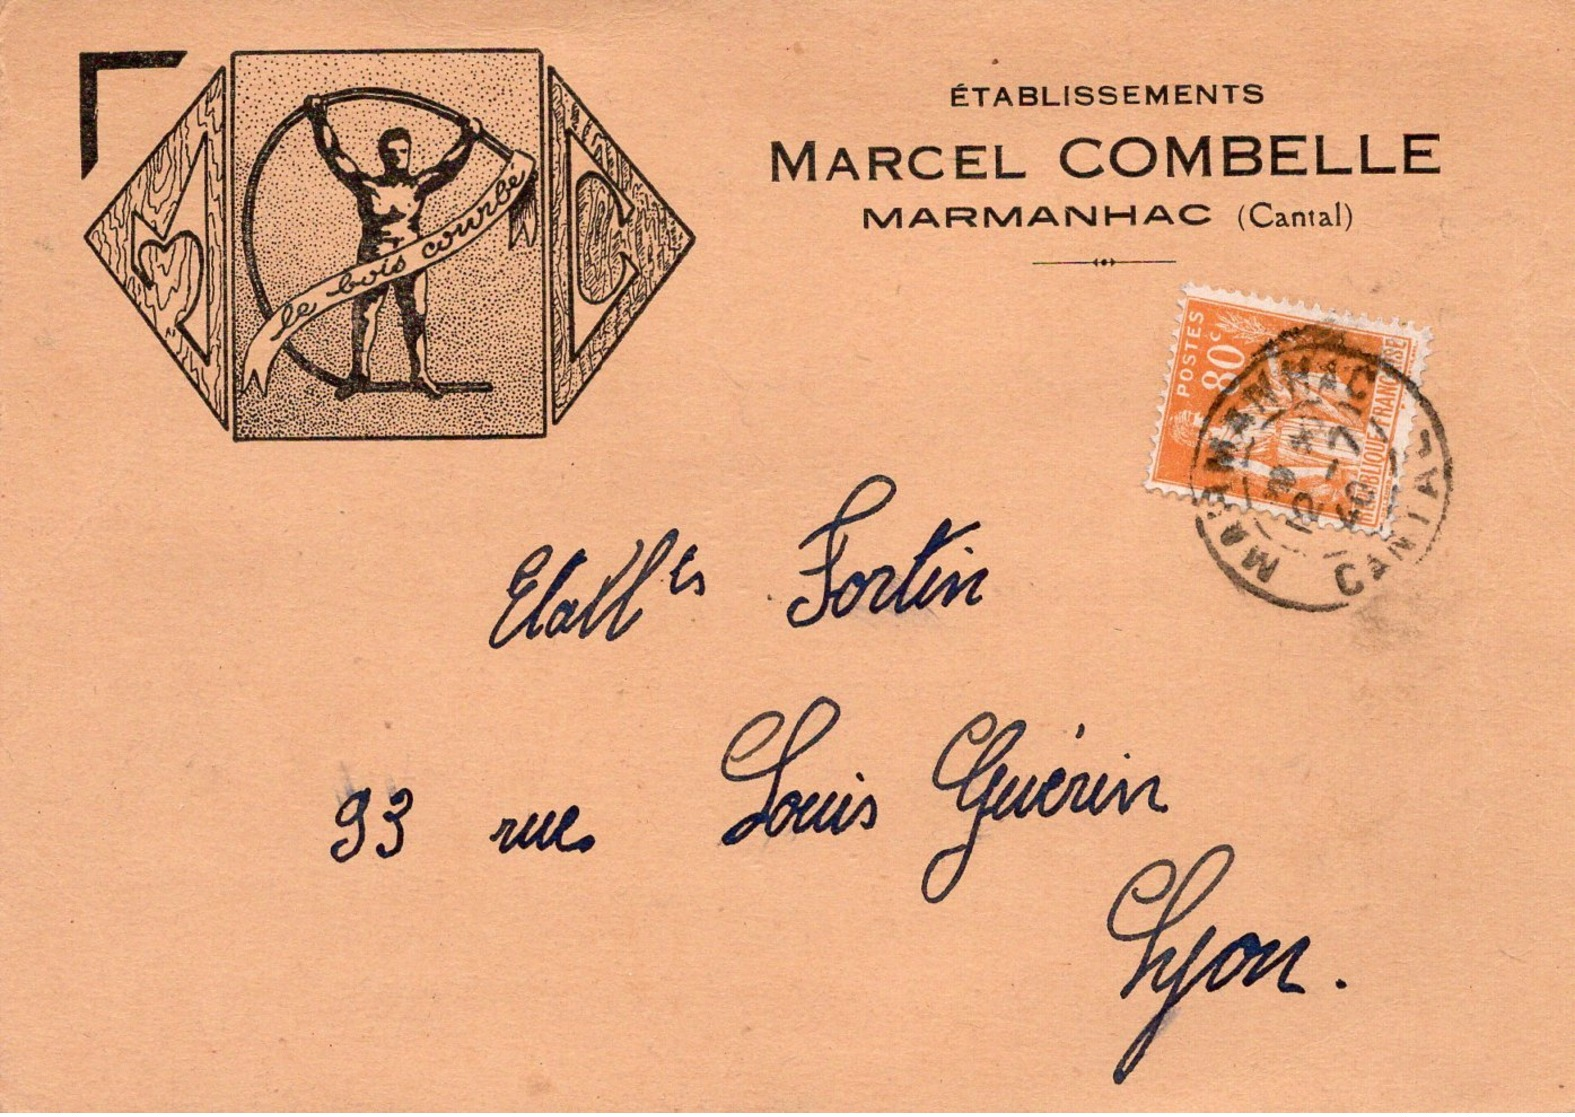 M C
le bois courbé
ÉTABLISSEMENTS
MARCEL COMBELLE
MARMANHAC (Cantal)
POSTES
80c
RÉPUBLIQUE FRANÇAISE
MARMANHAC
12 -7
40
CANTAL
Etabll ts Fortin
93 rue Louis Guérin
Lyon.